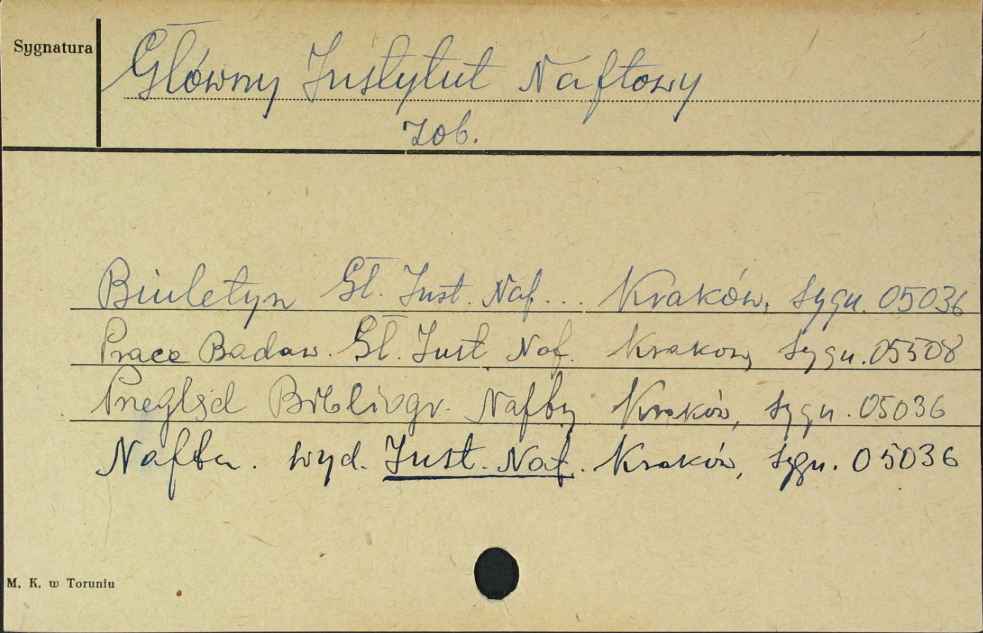 Sygnatura
Główny Instytut Naftowy
zob.
Biuletyn Gł. Inst. Naf... Kraków, sygn. 05036
Prace Badaw. Gł. Inst Naf. Kraków, sygn. 05508
Przegląd Bibliogr. Nafty Kraków, sygn. 05036
Nafta. wyd. Inst. Naf. Kraków, sygn. 05036
M. K. w Toruniu